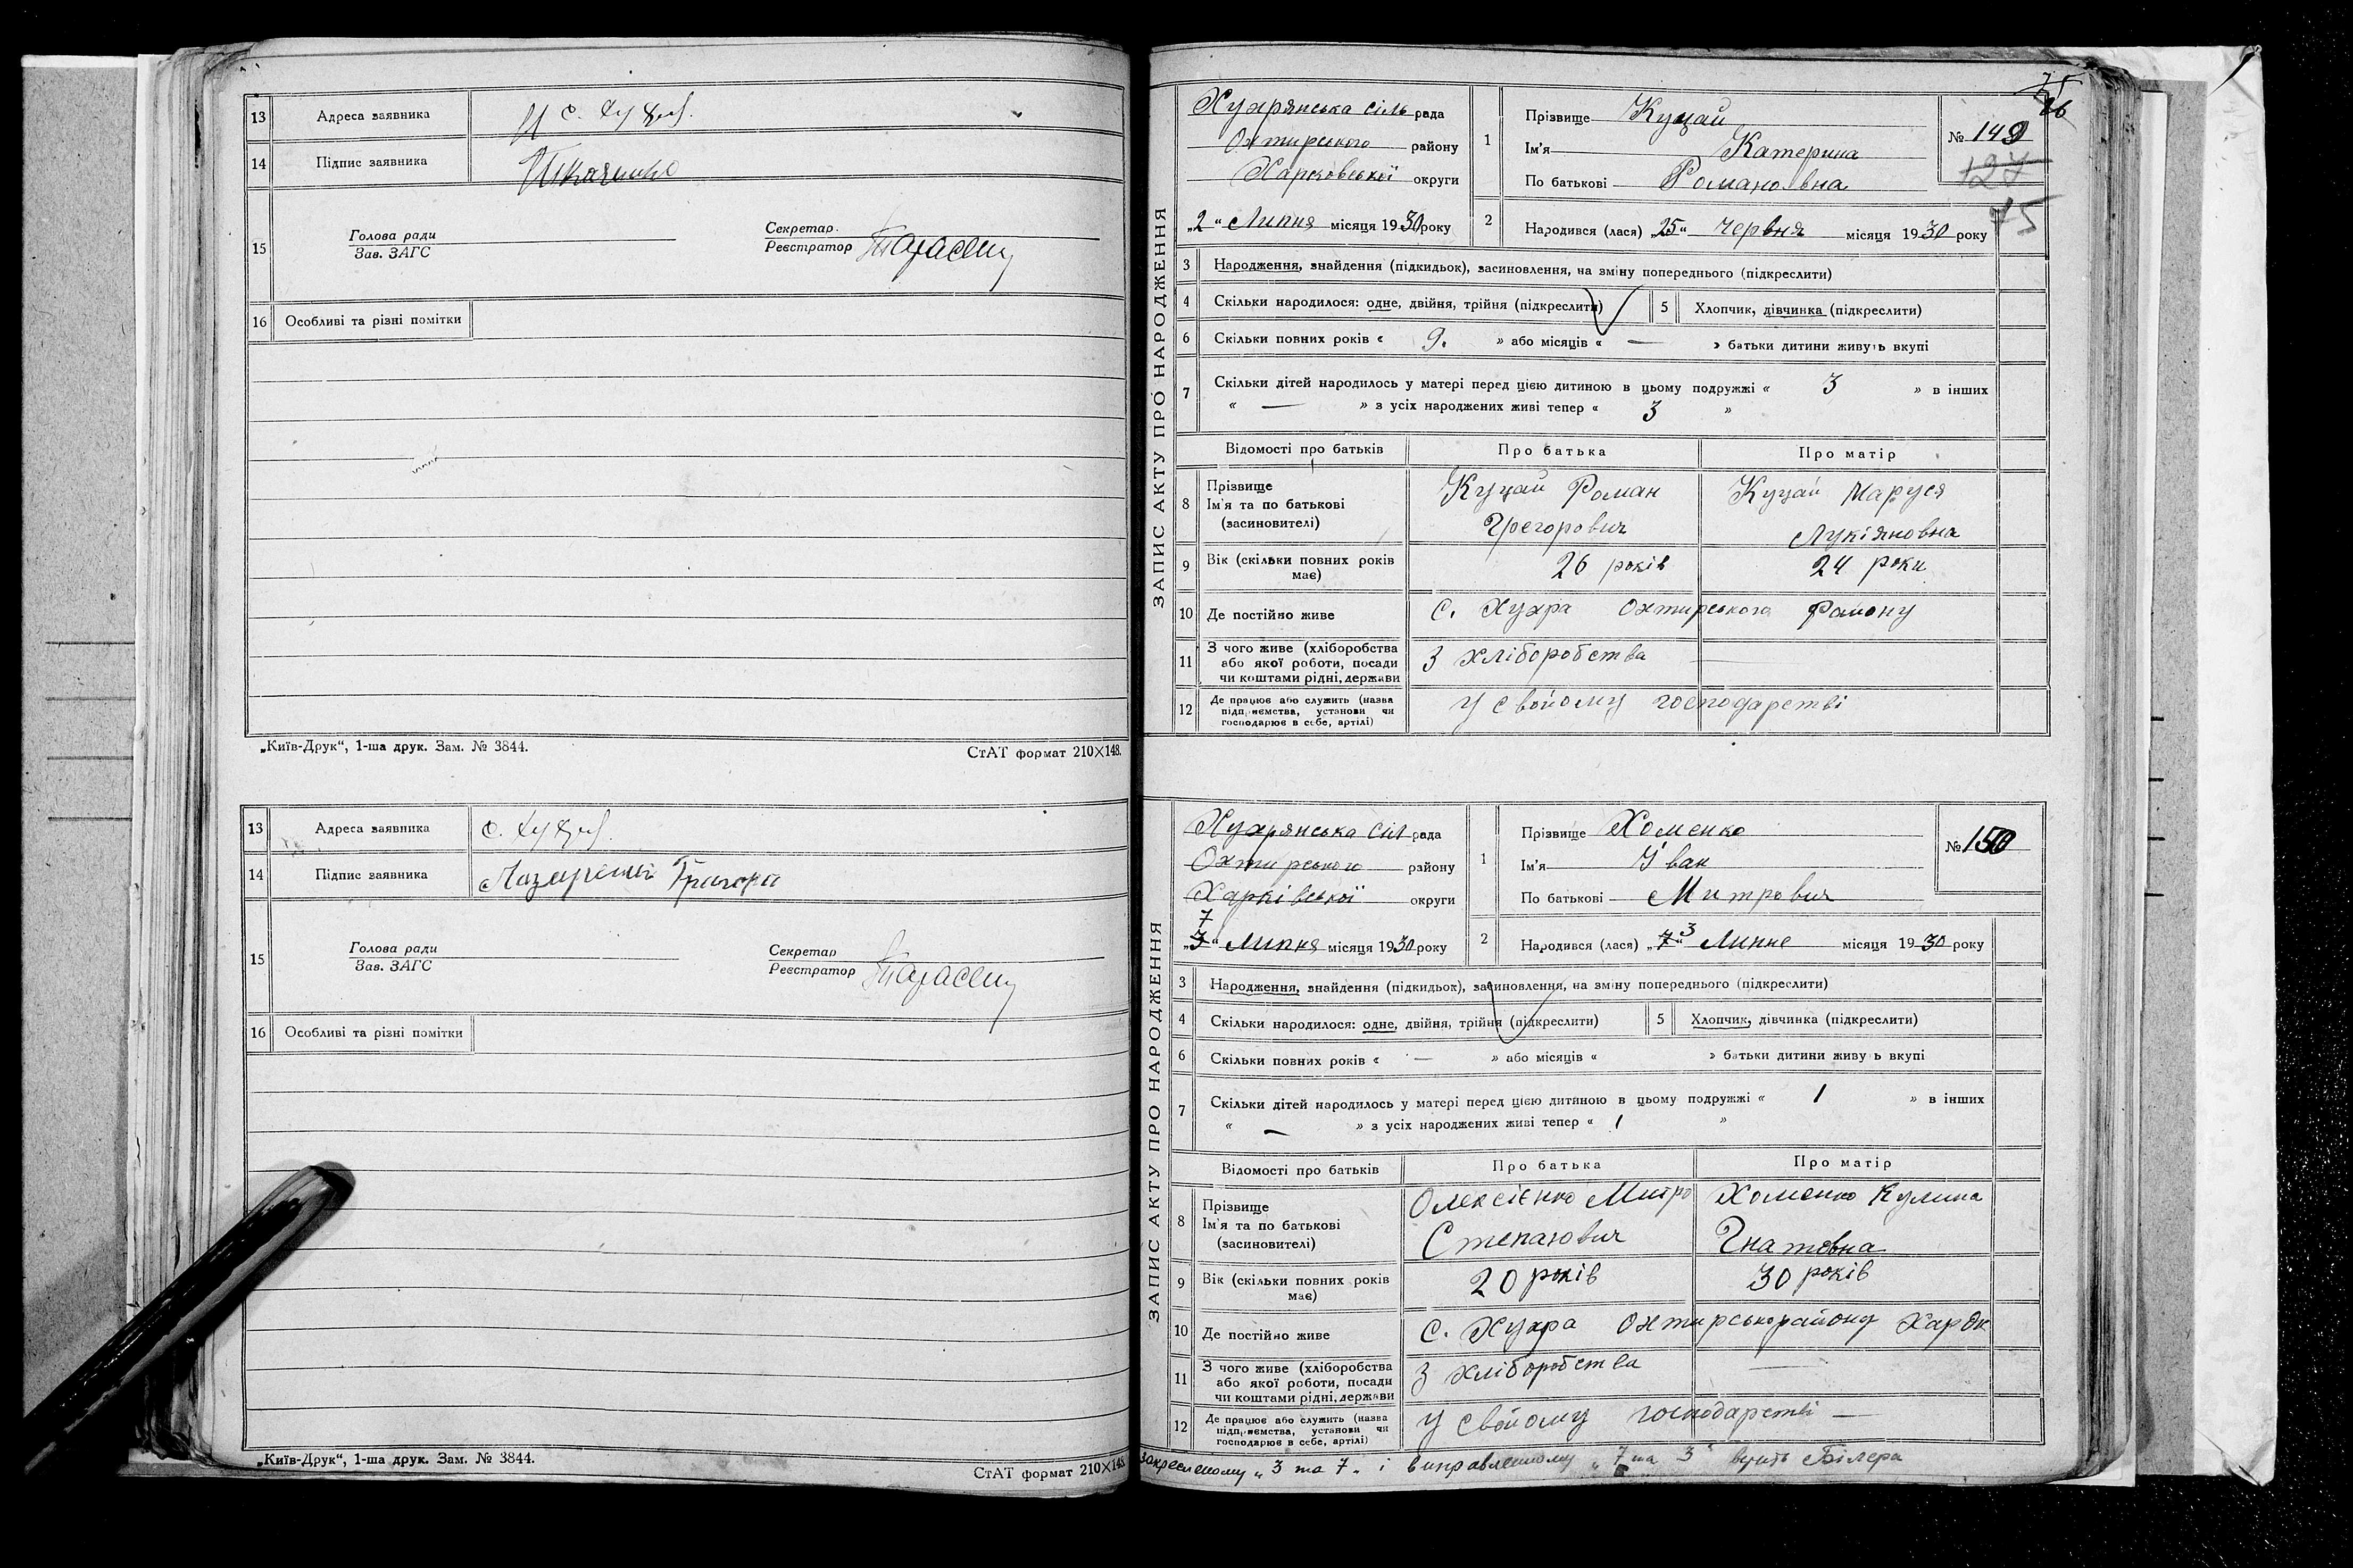 13 Адреса заявника с. Хухра.
14 Підпис заявника Ткаченко
15 Голова ради
Зав. ЗАГС
Секретар
Реєстратор
16 Особливі та різні помітки
„Київ-Друк“, 1-ша друк. Зам. № 3844.
СтАТ формат 210×148.
13 Адреса заявника с. Хухра.
14 Підпис заявника
15 Голова ради
Зав. ЗАГС
Секретар
Реєстратор
16 Особливі та різні помітки
„Київ-Друк“, 1-ша друк. Зам. № 3844.
СтАТ формат 210×148.
75
76
ЗАПИС АКТУ ПРО НАРОДЖЕННЯ
Хухрянська сіль рада
Охтирського району
Харковської округи
„2“ Липня місяця 1930 року
1 Прізвище Куцай
Ім'я Катерина
По батькові Романовна
№ 149
127
75
2 Народився (лася) „25“ Червня місяця 1930 року
3 Народження, знайдення (підкидьок), засиновлення, на зміну попереднього (підкреслити)
4 Скільки народилося: одне, двійня, трійня (підкреслити) 5 Хлопчик, дівчинка (підкреслити)
6 Скільки повних років « 9. » або місяців « — » батьки дитини живуть вкупі
7 Скільки дітей народилось у матері перед цією дитиною в цьому подружжі « 3 » в інших
« — » з усіх народжених живі тепер « 3 »
Відомості про батьків Про батька Про матір
8 Прізвище Ім'я та по батькові (засиновителі)
Куцай Роман Куцай Маруся
Грегорович Лукіяновна
9 Вік (скільки повних років має) 26 років 24 роки
10 Де постійно живе с. Хухра Охтирського Району
11 З чого живе (хліборобства або якої роботи, посади чи коштами рідні, держави
З хліборобства —
12 Де працює або служить (назва підприємства, установи чи господарює в себе, артілі)
У свойому господарстві
ЗАПИС АКТУ ПРО НАРОДЖЕННЯ
Хухрянська сіл рада
Охтирського району
Харківської округи
7
„3“ Липня місяця 1930 року
1 Прізвище Хоменко
Ім'я Іван
По батькові Митрович
№ 150
2 Народився (лася) „7“ 3 Липне місяця 1930 року
3 Народження, знайдення (підкидьок), засиновлення, на зміну попереднього (підкреслити)
4 Скільки народилося: одне, двійня, трійня (підкреслити) 5 Хлопчик, дівчинка (підкреслити)
6 Скільки повних років « — » або місяців « » батьки дитини живуть вкупі
7 Скільки дітей народилось у матері перед цією дитиною в цьому подружжі « 1 » в інших
« — » з усіх народжених живі тепер « 1 »
Відомості про батьків Про батька Про матір
8 Прізвище Ім'я та по батькові (засиновителі)
Олексієнко Митро Хоменко Кулина
Степанович Гнатовна
9 Вік (скільки повних років має) 20 років 30 років
10 Де постійно живе с. Хухра Охтирськ району Хар Ок
11 З чого живе (хліборобства або якої роботи, посади чи коштами рідні, держави
З хліборобства —
12 Де працює або служить (назва підприємства, установи чи господарює в себе, артілі)
У свойому господарстві —
закресленому „3 та 7“ і виправленному „7 та 3“ верить